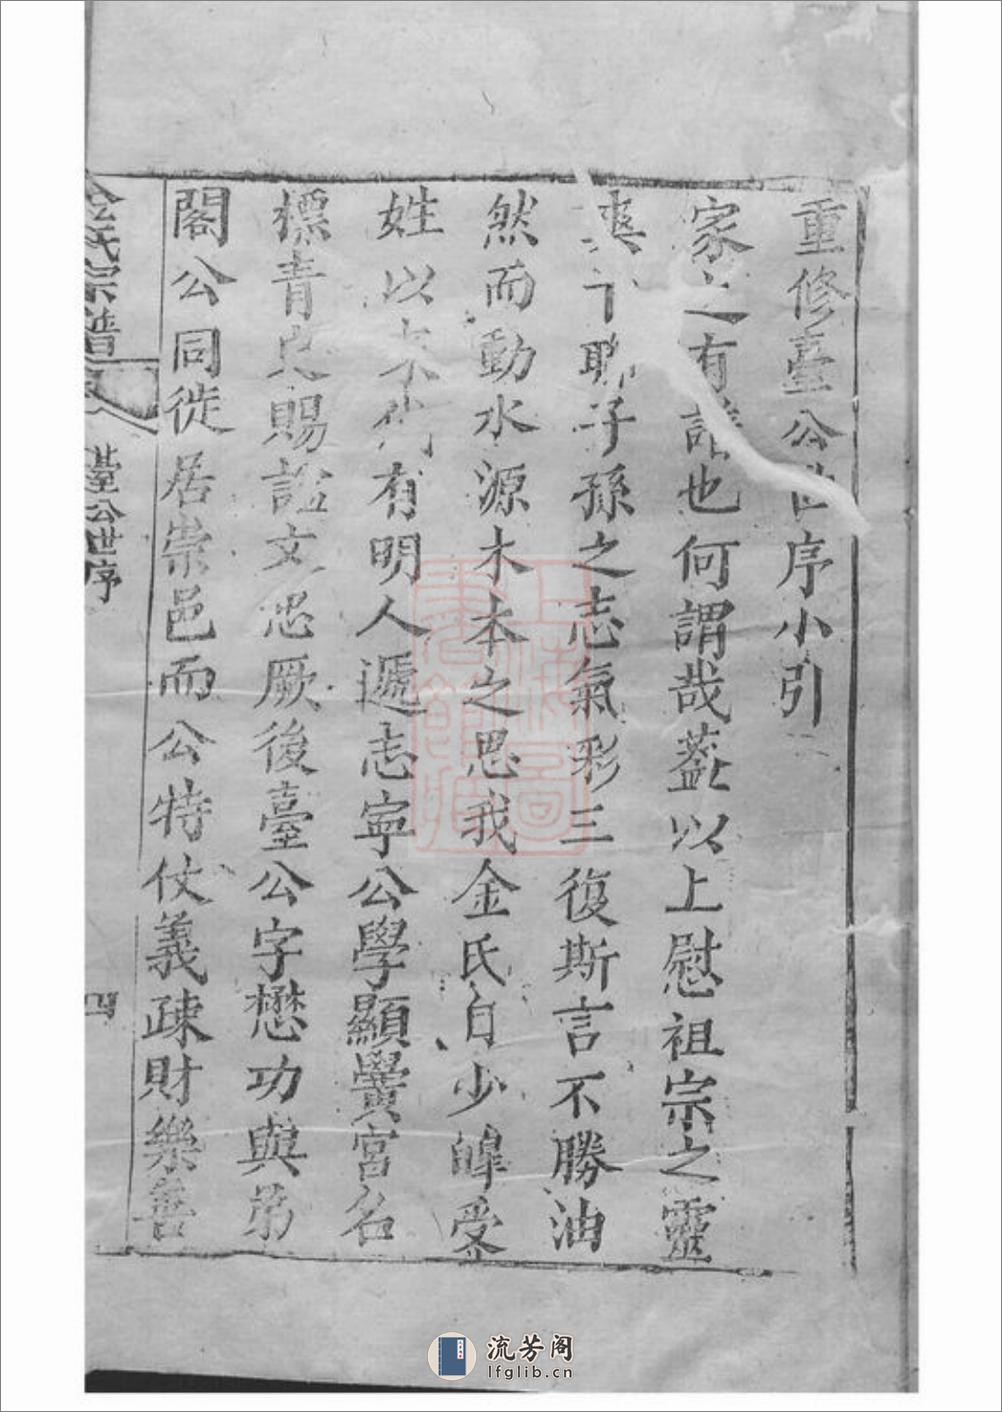 重修臺公世序小引
家之有譜也何謂哉蓋以上慰祖宗之靈
爽下聯子孫之志氣彩三復斯言不勝油
然而動水源木本之思我金氏自少皞受
姓以來代有明人遞志寧公學顯黌宮名
標青史賜諡文忠厥後臺公字懋功與弟
閣公同徙居崇邑而公特仗義疎財樂善
金氏宗譜
臺公世序
四
上海圖書館藏
流芳阁
lfglib.cn